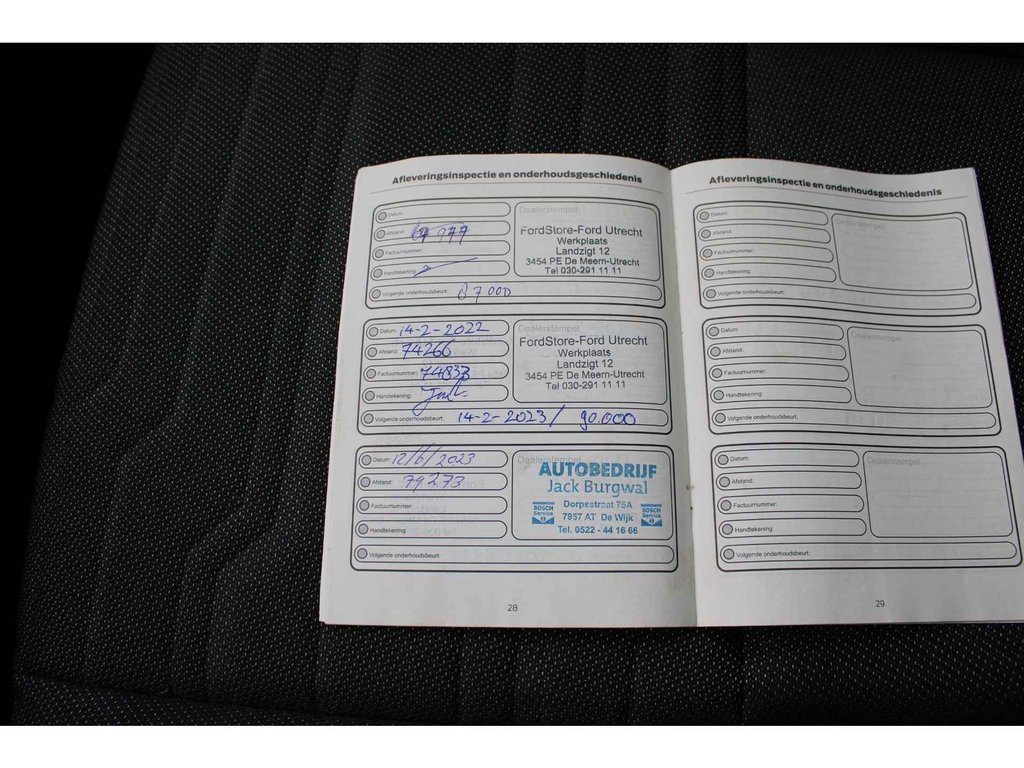 Afleveringsinspectie en onderhoudsgeschiedenis
Datum:
Afstand:
Factuurnummer:
Handtekening:
Volgende onderhoudsbeurt: 87000
Dealerstempel
FordStore-Ford Utrecht
Werkplaats
Landzigt 12
3454 PE De Meern-Utrecht
Tel 030-291 11 11
Datum: 14-2-2022
Afstand: 74266
Factuurnummer: 74833
Handtekening:
Volgende onderhoudsbeurt: 14-2-2023 / 90.000
Dealerstempel
FordStore-Ford Utrecht
Werkplaats
Landzigt 12
3454 PE De Meern-Utrecht
Tel 030-291 11 11
Datum: 12/6/2023
Afstand: 79273
Factuurnummer:
Handtekening:
Volgende onderhoudsbeurt:
Dealerstempel
AUTOBEDRIJF
Jack Burgwal
Dorpsstraat 75A
7957 AT De Wijk
Tel. 0522 - 44 16 66
BOSCH
Service
BOSCH
Service
28
Afleveringsinspectie en onderhoudsgeschiedenis
Datum:
Afstand:
Factuurnummer:
Handtekening:
Volgende onderhoudsbeurt:
Dealerstempel
Datum:
Afstand:
Factuurnummer:
Handtekening:
Volgende onderhoudsbeurt:
Dealerstempel
Datum:
Afstand:
Factuurnummer:
Handtekening:
Volgende onderhoudsbeurt:
Dealerstempel
29